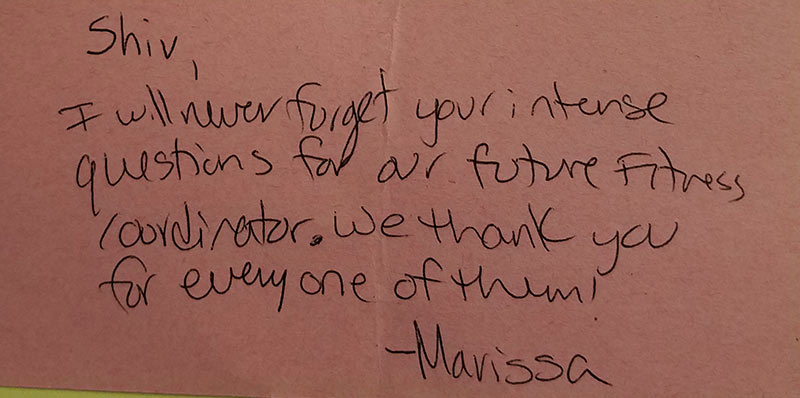 Shiv,
I will never forget your intense
questions for our future Fitness
coordinator. We thank you
for every one of them!
-Marissa